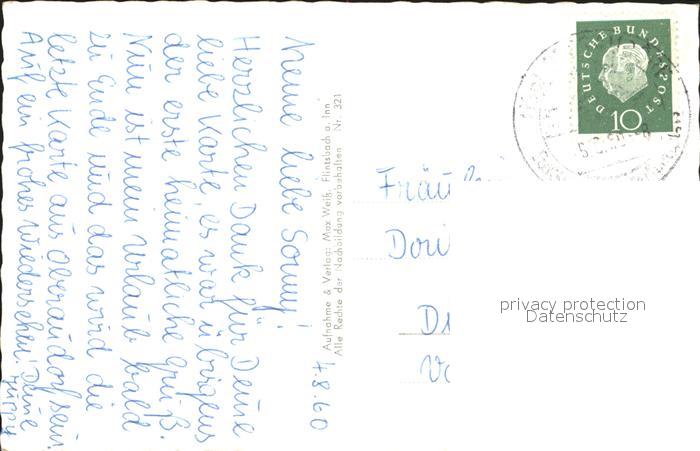 4.8.60
Meine liebe Sonny!
Herzlichen Dank für Deine
liebe Karte, es war übrigens
der erste heimatliche Gruß.
Nun ist mein Urlaub bald
zu Ende und das wird die
letzte Karte aus Oberaudorf sein.
Auf ein frohes Wiedersehen! Deine
Aufnahme & Verlag: Max Weiß, Flintsbach a. Inn
Alle Rechte der Nachbildung vorbehalten Nr. 321
DEUTSCHE BUNDESPOST
10
Fräu
Dori
privacy protection
Datenschutz